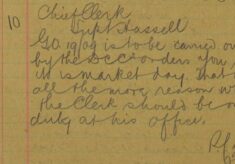 10
Chief Clerk
Supt Hassell
G.O. 19/09 is to be carried ou
by the D.C.C's orders you,
it is market day. that
all the more reason w
the Clerk should be o
duty at his office.